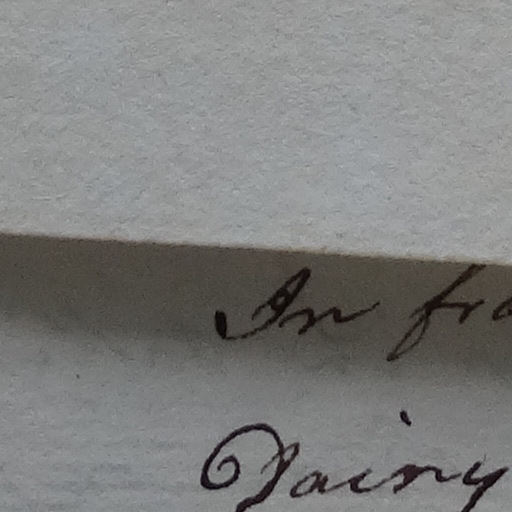 In fro
Dairy